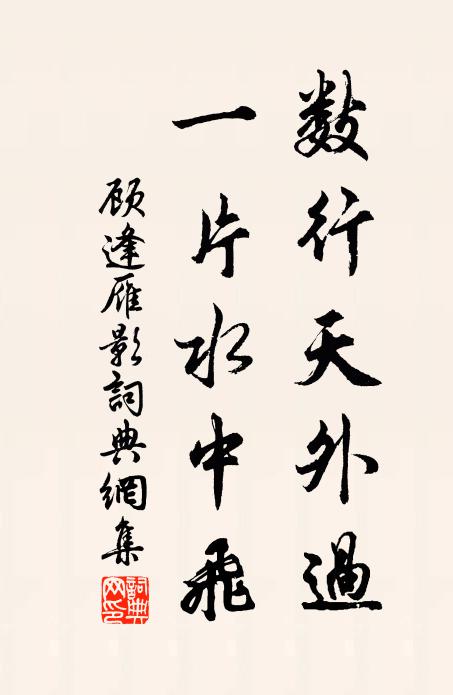 數行天外過
一片水中飛
顾逢雁影詞典網集
詞典网印